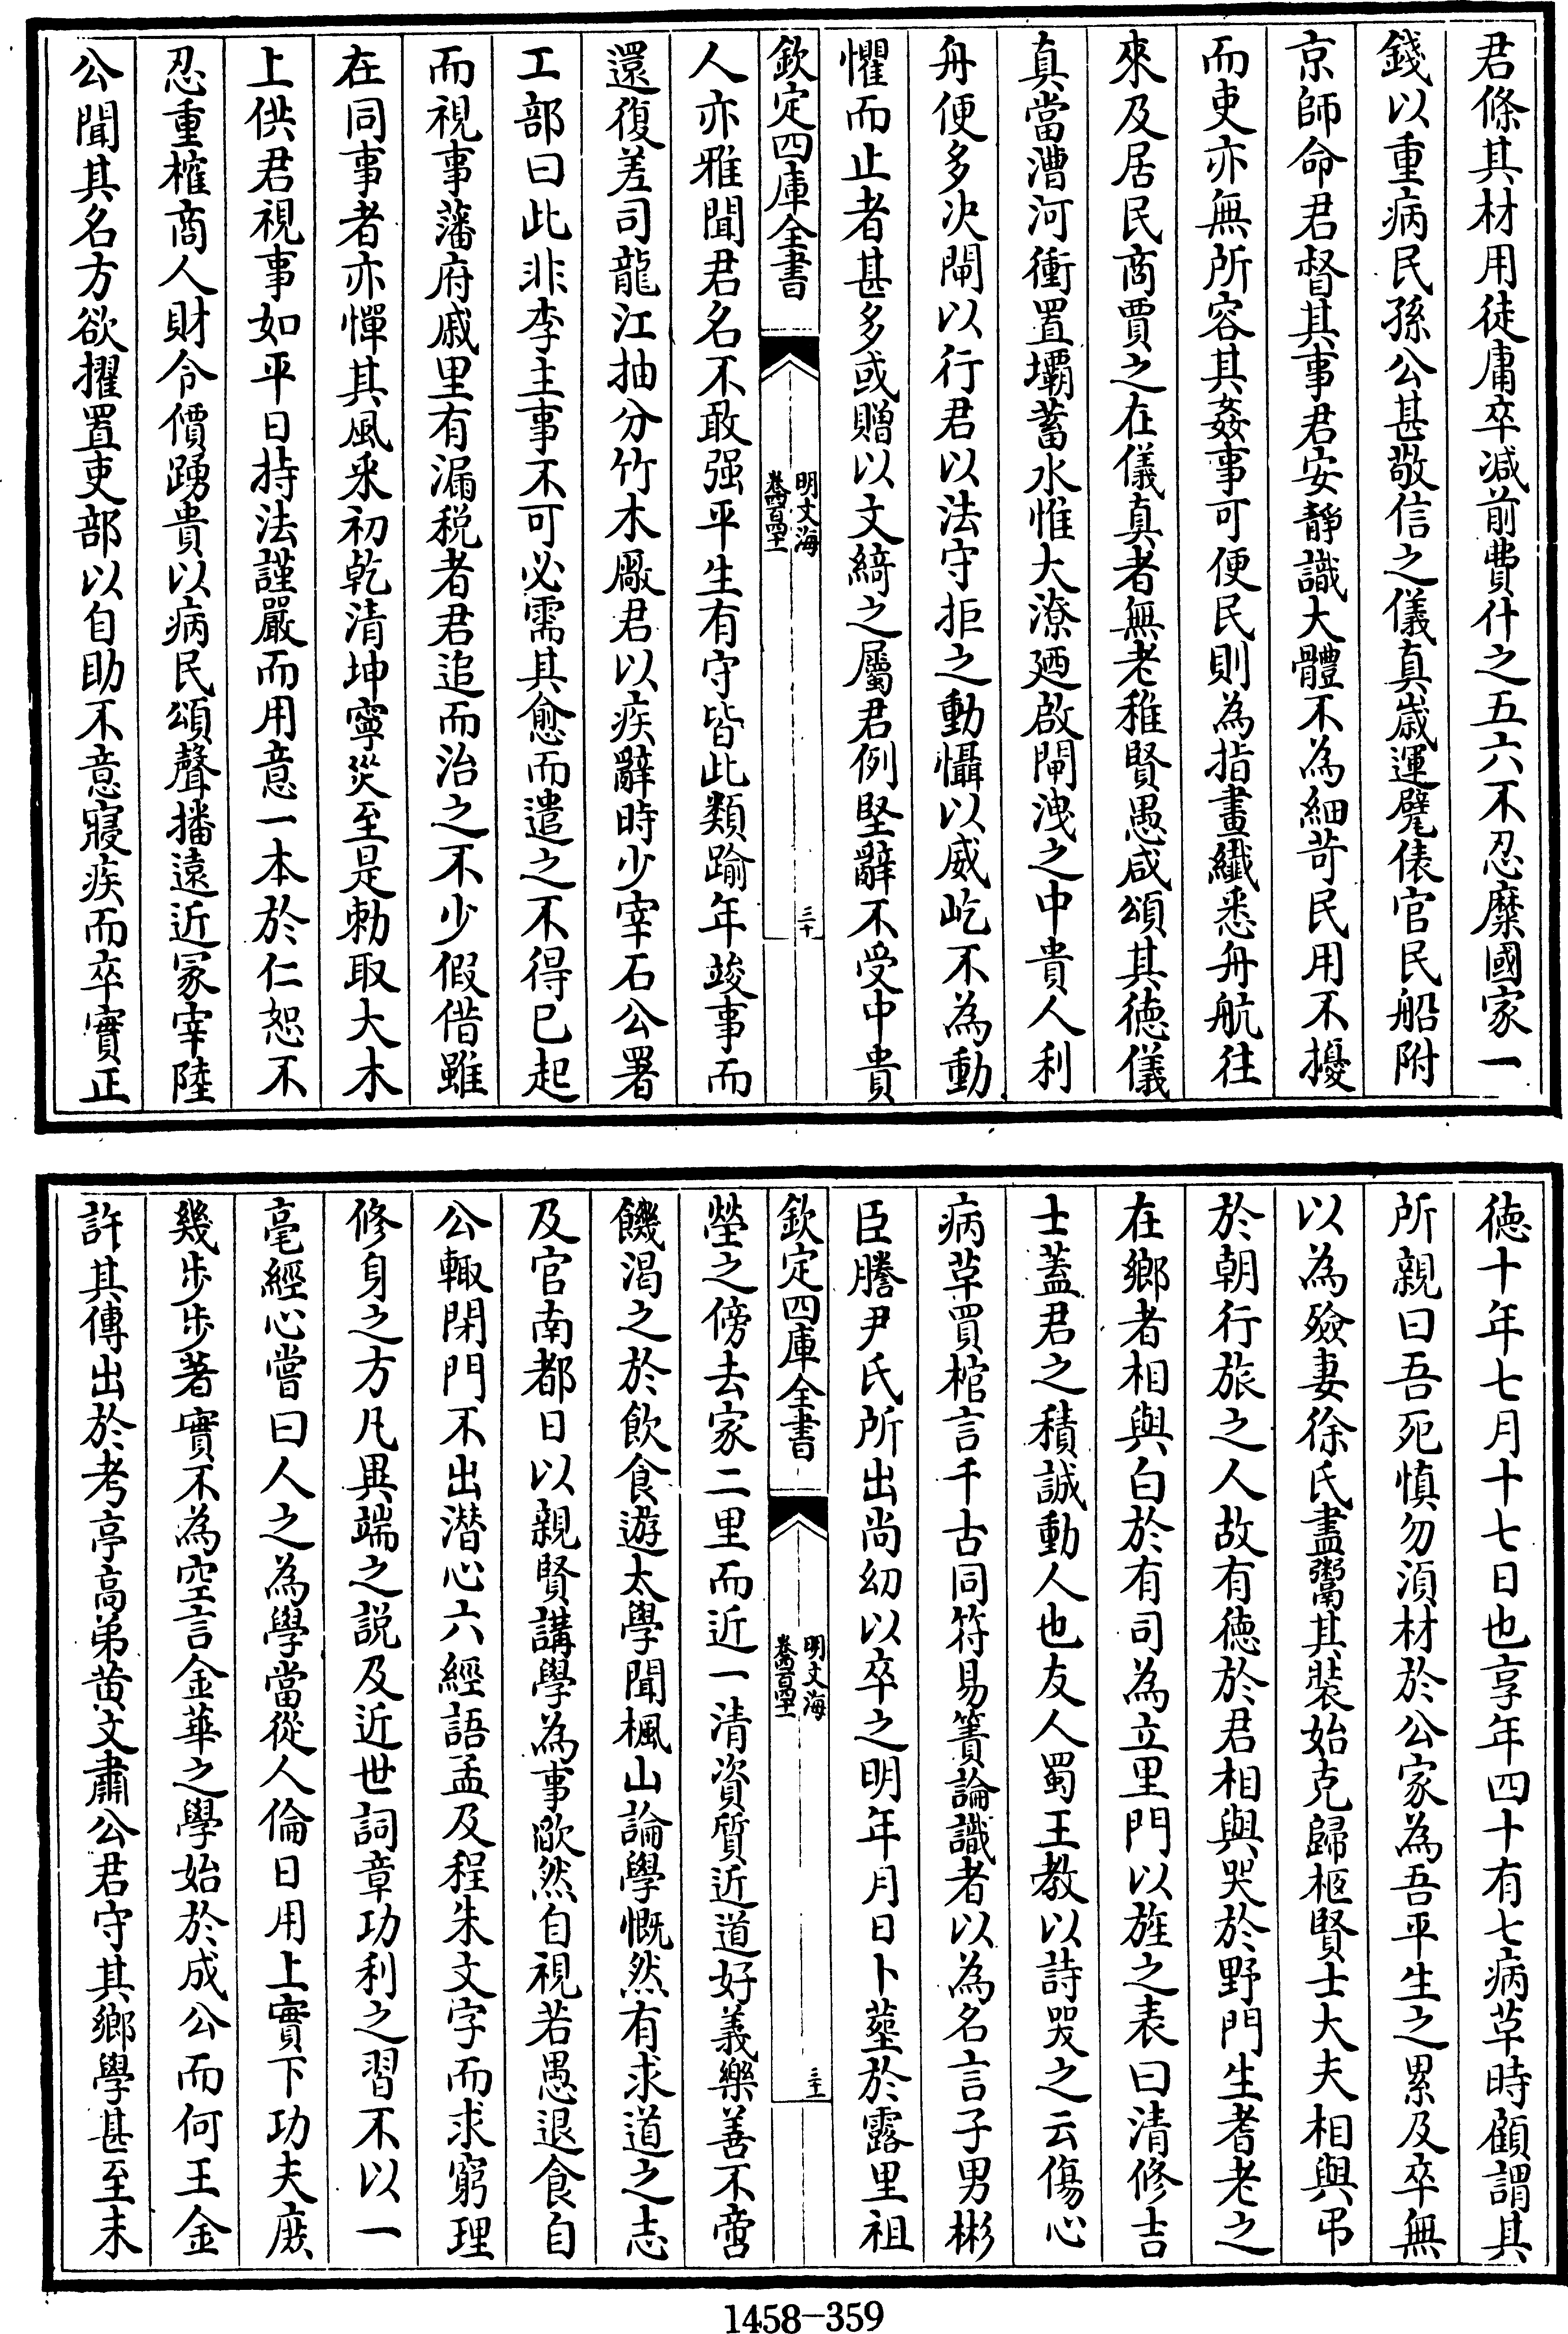 君條其材用徒庸卒减前費什之五六不忍糜國家一
錢以重病民孫公甚敬信之儀真歲運甓俵官民船附
京師命君督其事君安靜識大體不為細苛民用不擾
而吏亦無所容其姦事可便民則為指畫纖悉舟航往
來及居民商賈之在儀真者無老稚賢愚咸頌其德儀
真當漕河衝置壩蓄水惟大潦廼啟閘洩之中貴人利
舟便多決閘以行君以法守拒之動懾以威屹不為動
懼而止者甚多或贈以文綺之屬君例堅辭不受中貴
欽定四庫全書
明文海
卷四百四十一
三十
人亦雅聞君名不敢强平生有守皆此類踰年竣事而
還復差司龍江抽分竹木厰君以疾辭時少宰石公署
工部曰此非李主事不可必需其愈而遣之不得已起
而視事藩府戚里有漏税者君追而治之不少假借雖
在同事者亦憚其風采初乾清坤寧災至是勅取大木
上供君視事如平日持法謹嚴而用意一本於仁恕不
忍重榷商人財令價踴貴以病民頌聲播遠近冢宰陸
公聞其名方欲擢置吏部以自助不意寢疾而卒實正
德十年七月十七日也享年四十有七病草時顧謂其
所親曰吾死慎勿湏材於公家為吾平生之累及卒無
以為殮妻徐氏盡鬻其裝始克歸柩賢士大夫相與弔
於朝行旅之人故有德於君相與哭於野門生耆老之
在鄉者相與白於有司為立里門以旌之表曰清修吉
士蓋君之積誠動人也友人蜀王教以詩哭之云傷心
病草買棺言千古同符易簀論識者以為名言子男彬
臣謄尹氏所出尚幼以卒之明年月日卜塟於露里祖
欽定四庫全書
明文海
卷四百四十一
三十一
塋之傍去家二里而近一清資質近道好義樂善不啻
饑渴之於飲食遊太學聞楓山論學慨然有求道之志
及官南都日以親賢講學為事歐然自視若愚退食自
公輒閉門不出潛心六經語孟及程朱文字而求窮理
修身之方凡異端之説及近世詞章功利之習不以一
毫經心嘗曰人之為學當從人倫日用上實下功夫庻
幾步步著實不為空言金華之學始於成公而何王金
許其傳出於考亭高弟黄文肅公君守其鄉學甚至未